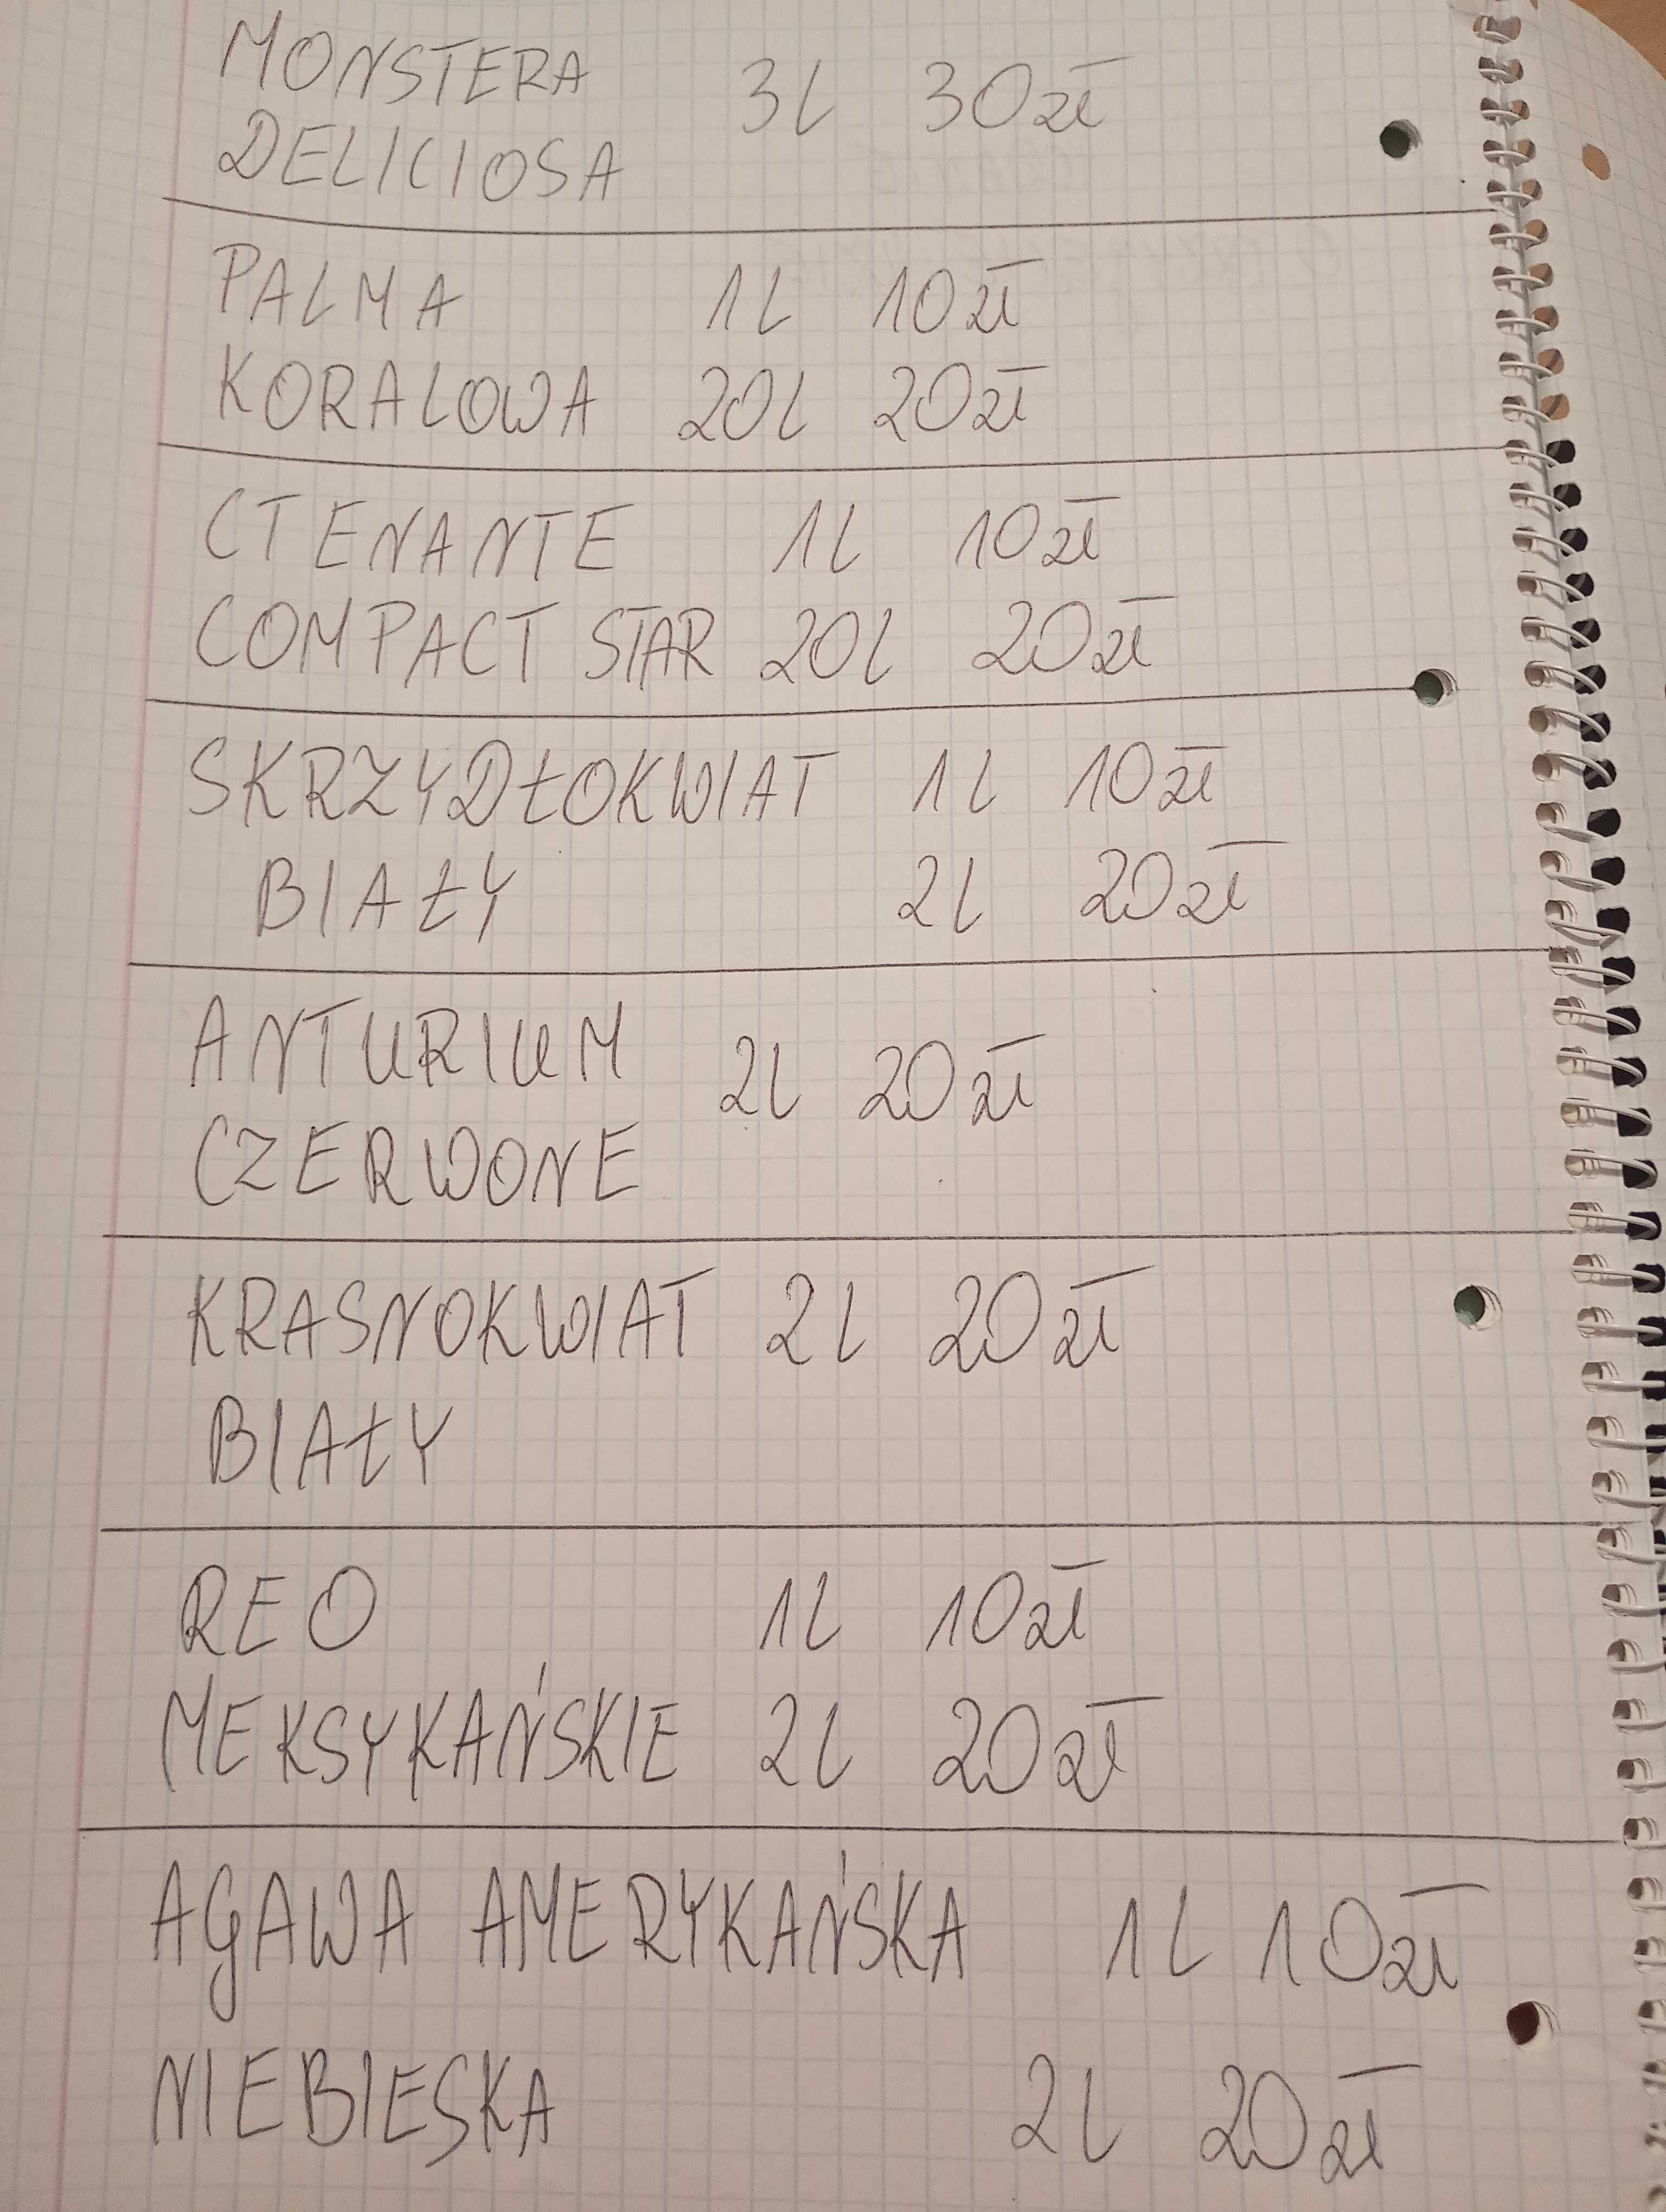 MONSTERA 3L 30zł
DELICIOSA
PALMA 1L 10zł
KORALOWA 20L 20zł
CTENANTE 1L 10zł
COMPACT STAR 20L 20zł
SKRZYDŁOKWIAT 1L 10zł
BIAŁY 2L 20zł
ANTURIUM 2L 20zł
CZERWONE
KRASNOKWIAT 2L 20zł
BIAŁY
REO 1L 10zł
MEKSYKAŃSKIE 2L 20zł
AGAWA AMERYKAŃSKA 1L 10zł
NIEBIESKA 2L 20zł